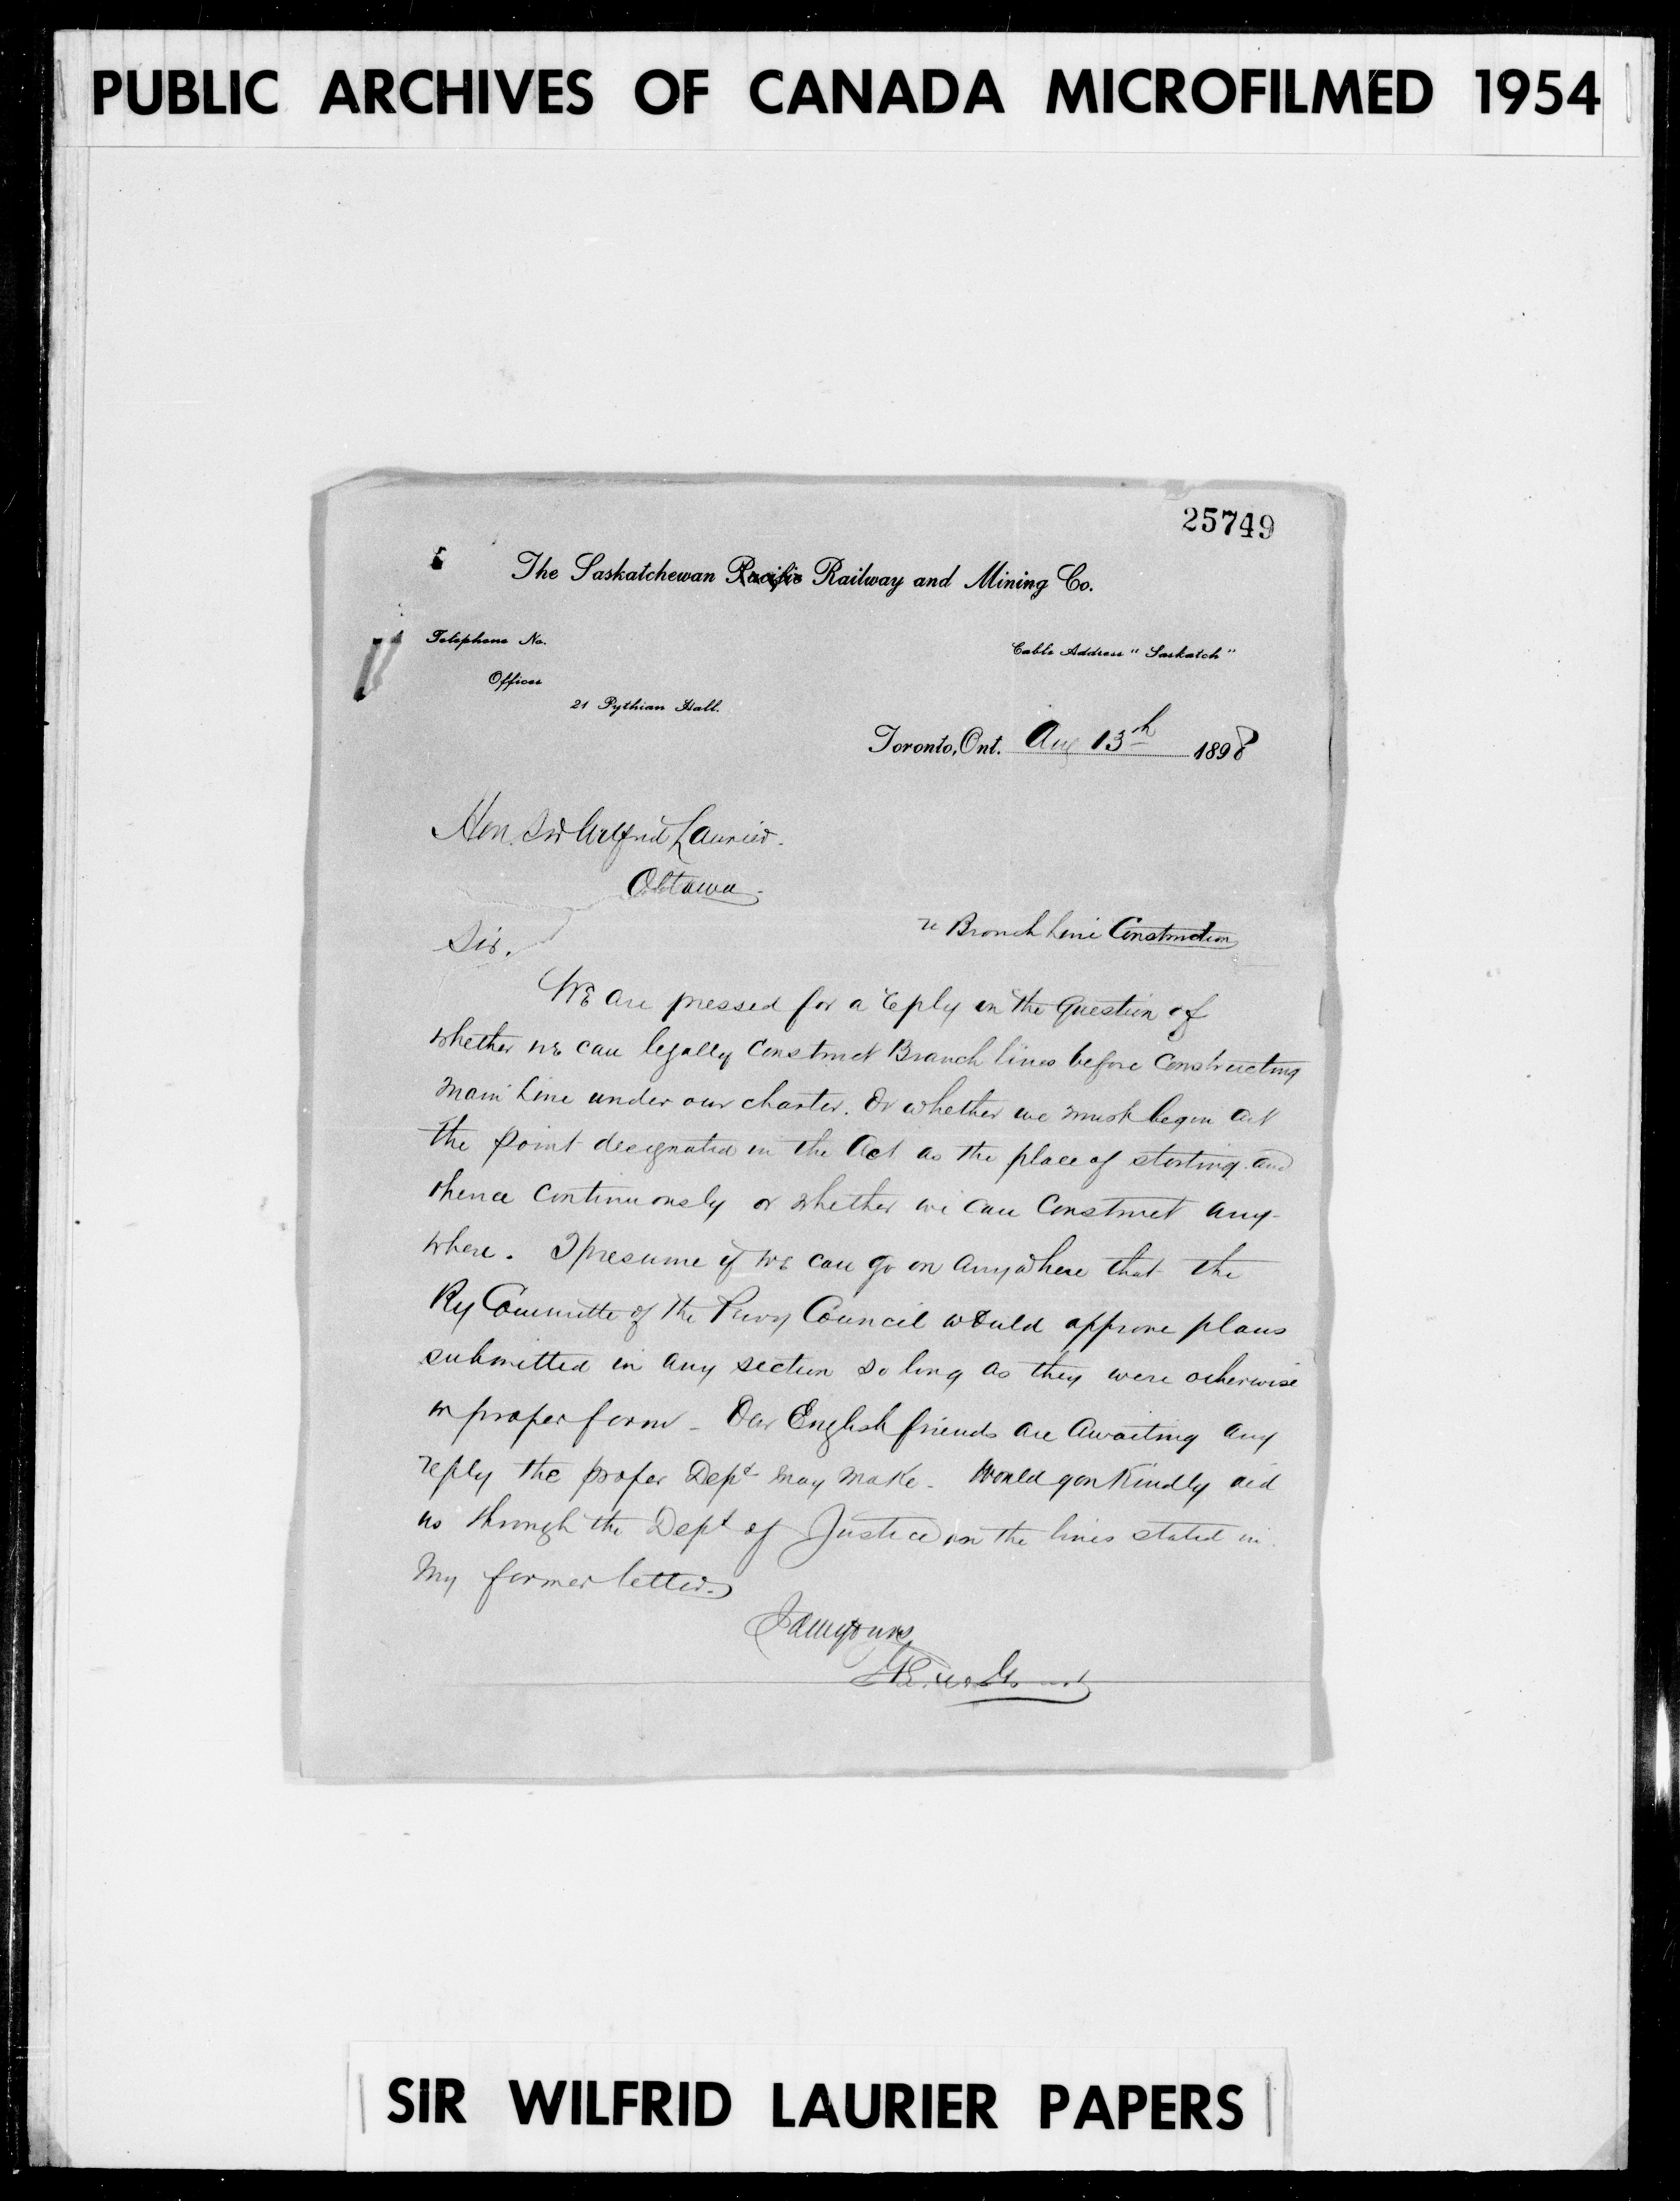 PUBLIC ARCHIVES OF CANADA MICROFILMED 1954
25749
The Saskatchewan Pacific Railway and Mining Co.
Telephone No.
Cable Address "Saskatch"
Offices
21 Pythian Hall.
Toronto, Ont. Aug 13th 1898
Hon. Sir Wilfrid Laurier.
Ottawa.
re Branch Line Construction
Sir.
We are pressed for a reply on the Question of
whether we can legally construct Branch lines before constructing
Main Line under our charter. Or whether we must begin at
the point designated in the Act as the place of starting and
thence continuously or whether we can construct any-
where. I presume if we can go on anywhere that the
Ry Committe of the Privy Council would approve plans
submitted in any section so long as they were otherwise
in proper form - Our English friends are awaiting any
reply the proper Dept may make. Would you Kindly aid
us through the Dept of Justice on the lines stated in
my former letter.
I am yours
SIR WILFRID LAURIER PAPERS